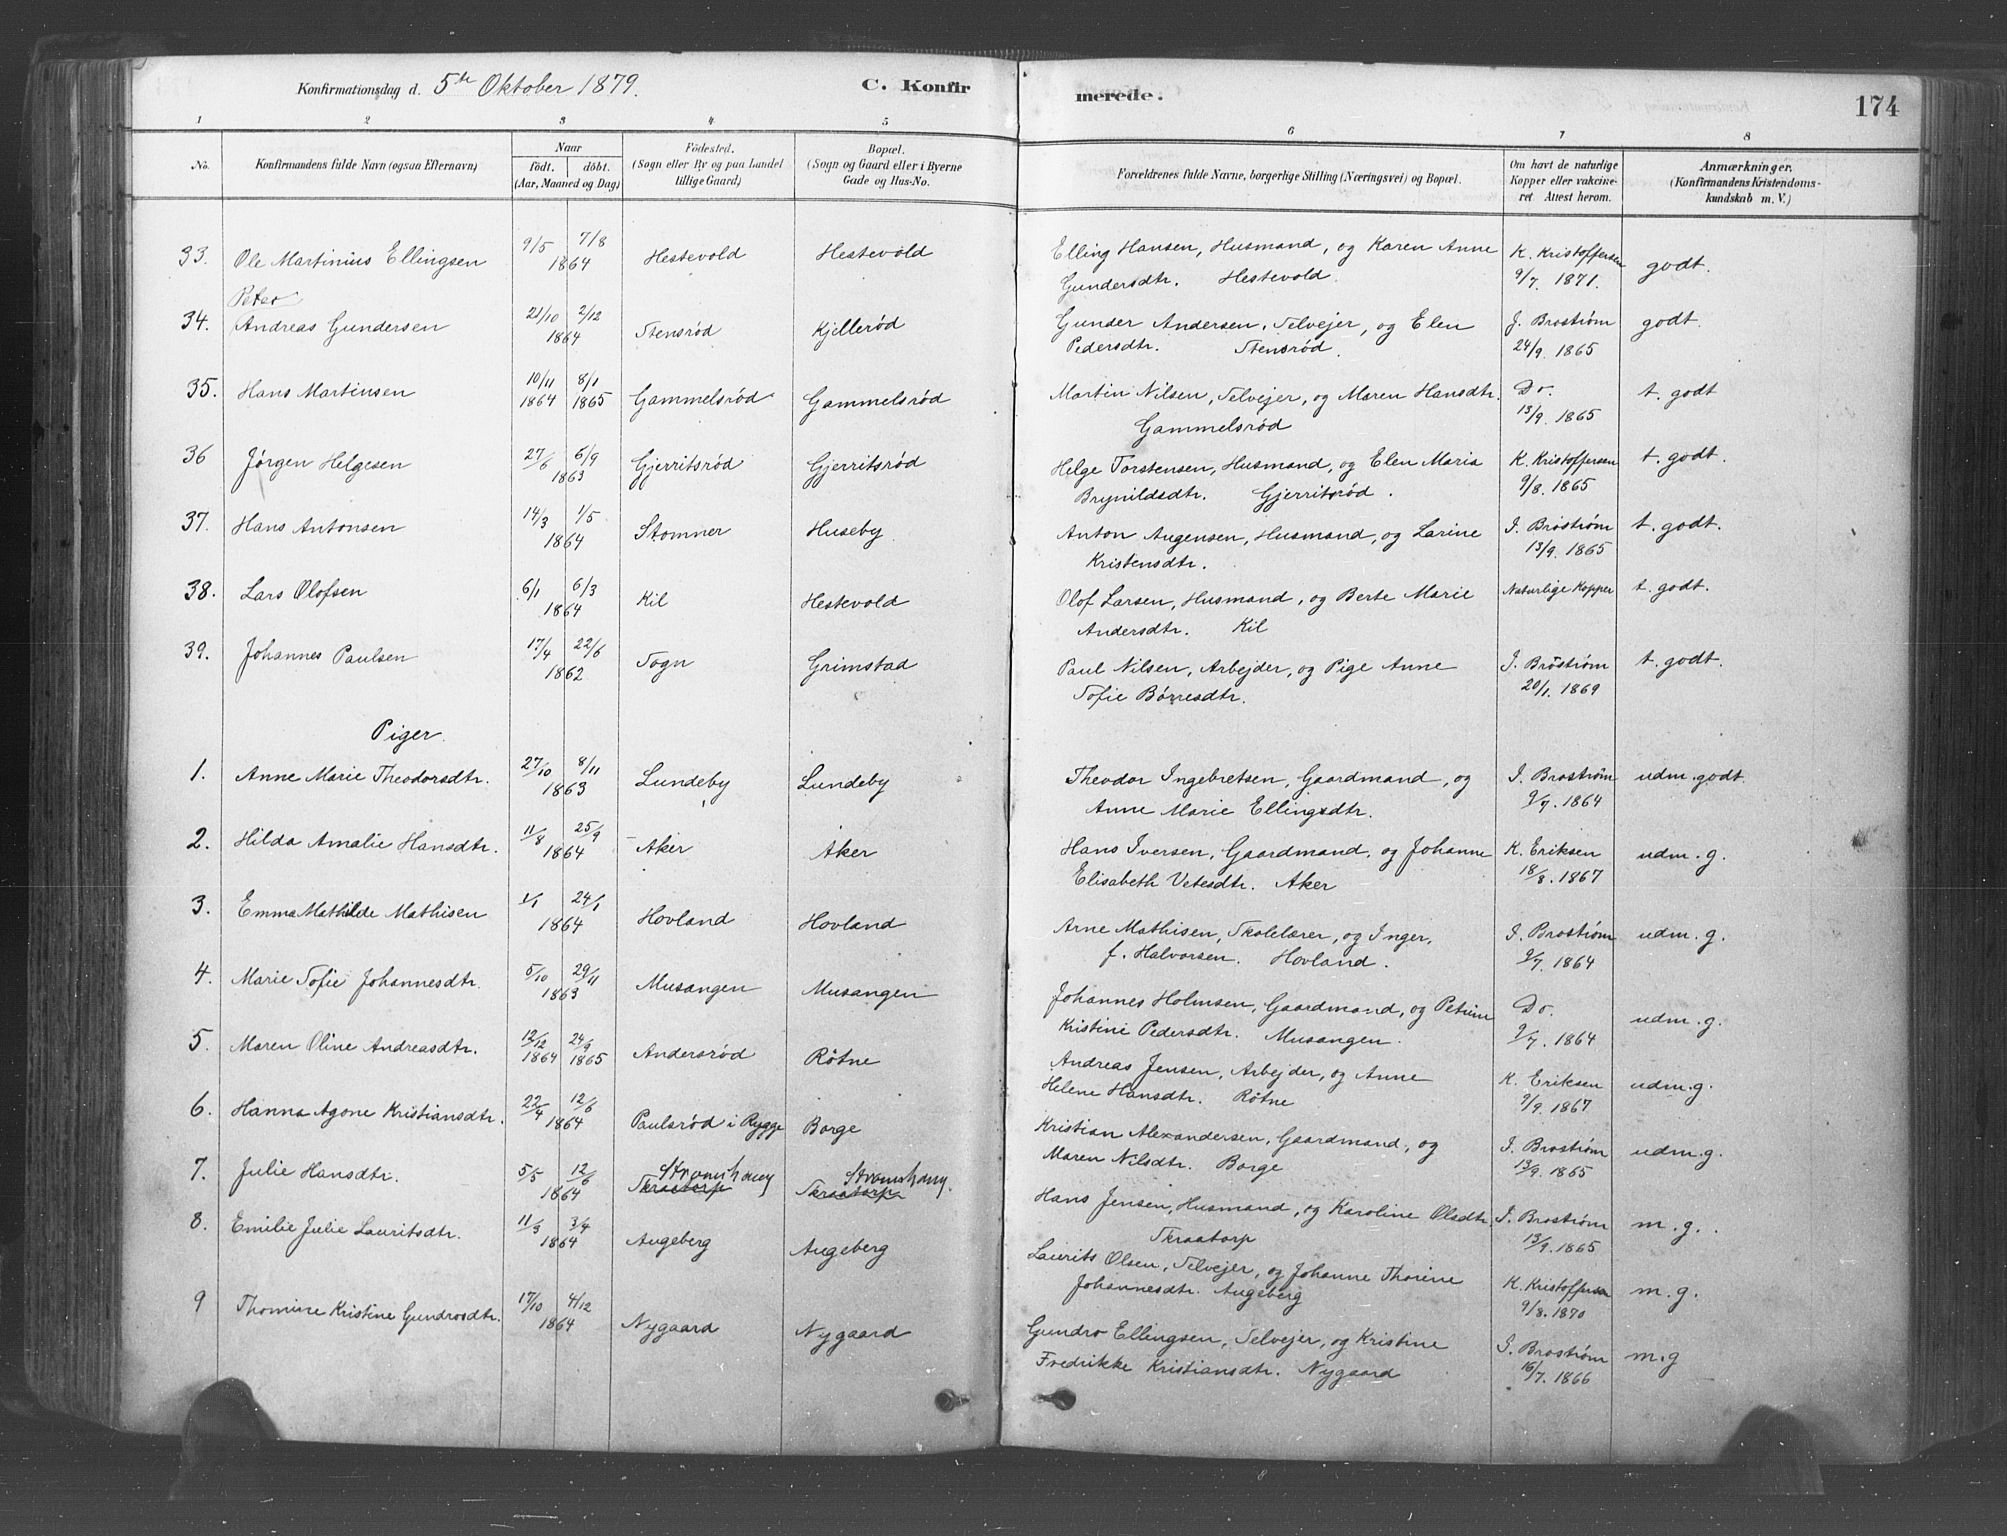 Konfirmationsdag d. 5te Oktober 1879. C. Konfir merede. 174
1 2 3 4 5 6 7 8
No. Konfirmandens fulde Navn (ogsaa Efternavn) Naar födt. döbt. (Aar, Maaned og Dag) Födested. (Sogn eller By og paa Landet tillige Gaard) Bopæl. (Sogn og Gaard eller i Byerne Gade og Hus-No. Forældrenes fulde Navne, borgerlige Stilling (Næringsvei) og Bopæl. Om havt de naturlige Kopper eller vakcineret Attest herom. Anmærkninger. (Konfirmandens Kristendomskundskab m. V.)
33. Ole Martinius Ellingsen 9/5 7/8 1864 Hestevold Hestevold Elling Hansen, Husmand, og Karen Anne K. Kristoffersen godt.
Gundersdtr. Hestevold. 9/7. 1871.
Peter
34. Andreas Gundersen 21/10 2/12 1864 Stensröd Kjelleröd Gunder Andersen, Selvejer, og Elen J. Broström godt.
Pedersdtr. Stensröd. 24/9. 1865
35. Hans Martinsen 10/11 1864 8/1 1865 Gammelsröd Gammelsröd Martin Nilsen, Selvejer, og Maren Hansdtr. Do. t. godt
Gammelsröd 13/9. 1865
36 Jörgen Helgesen 27/6 6/9 1863 Gjerritsröd Gjerritsröd Helge Torstensen, Husmand, og Elen Maria K. Kristoffersen t. godt.
Brynildsdtr. Gjerritsröd. 9/8. 1865
37. Hans Antonsen 14/3 1/5 1864 Stomner Huseby Anton Augensen, Husmand, og Larine J. Broström t. godt.
Kristensdtr. 13/9. 1865
38. Lars Olofsen 6/1 6/3 1864 Kil Hestevold Olof Larsen, Husmand, og Berte Marie Naturlige Kopper t. godt.
Andersdtr. Kil
39. Johannes Paulsen 17/4 22/6 1862 Sogn Grimstad Paul Nilsen, Arbejder, og Pige Anne J. Broström t. godt.
Sofie Börresdtr. 20/1. 1869
Piger.
1. Anne Marie Theodorsdtr. 27/10 8/11 1863 Lundeby Lundeby Theodor Ingebretsen, Gaardmand, og J. Broström udm. godt.
Anne Marie Ellingsdtr. 9/7. 1864
2. Hilda Amalie Hansdtr. 11/8 25/9 1864 Aker Aker Hans Iversen, Gaardmand, og Johanne K. Eriksen udm. g.
Elisabeth Vetesdtr. Aker 18/8. 1867
3. Emma Mathilde Mathisen 1/1 24/1 1864 Hovland Hovland Arne Mathisen, Skolelærer, og Inger, J. Broström udm. g.
f. Halvorsen. Hovland. 9/7. 1864
4. Marie Sofie Johannesdtr. 5/10 29/11 1863 Musangen Musangen Johannes Holmsen, Gaardmand, og Petrine Do. udm. g.
Kristine Pedersdtr. Musangen. 9/7. 1864
5. Maren Oline Andreasdtr. 12/12 1864 24/9 1865 Andersröd Rötne Andreas Jensen, Arbejder, og Anne K. Eriksen udm. g.
Helene Hansdtr. Rötne 9/9. 1867
6. Hanna Agone Kristiansdtr. 22/4 12/6 1864 Paulsröd i Rygge Borge Kristian Alexandersen, Gaardmand, og J. Broström udm. g.
Maren Nilsdtr. Borge 13/9. 1865
7. Julie Hansdtr. 5/5 12/6 1864 Skraatorp Stromshaug Skraatorp Stromshaug. Hans Jensen, Husmand, og Karoline Olsdtr. J. Broström m. g.
Skraatorp 13/9. 1865
8. Emilie Julie Lauritsdtr. 11/3 3/4 1864 Augeberg Augeberg Laurits Olsen, Selvejer, og Johanne Thorine K. Kristoffersen m. g.
Johannesdtr. Augeberg 9/8. 1870
9 Thomine Kristine Gundrosdtr. 17/10 4/12 1864 Nygaard Nygaard Gundro Ellingsen, Selvejer, og Kristine J. Broström m. g
Fredrikke Kristiansdtr. Nygaard 16/7. 1866